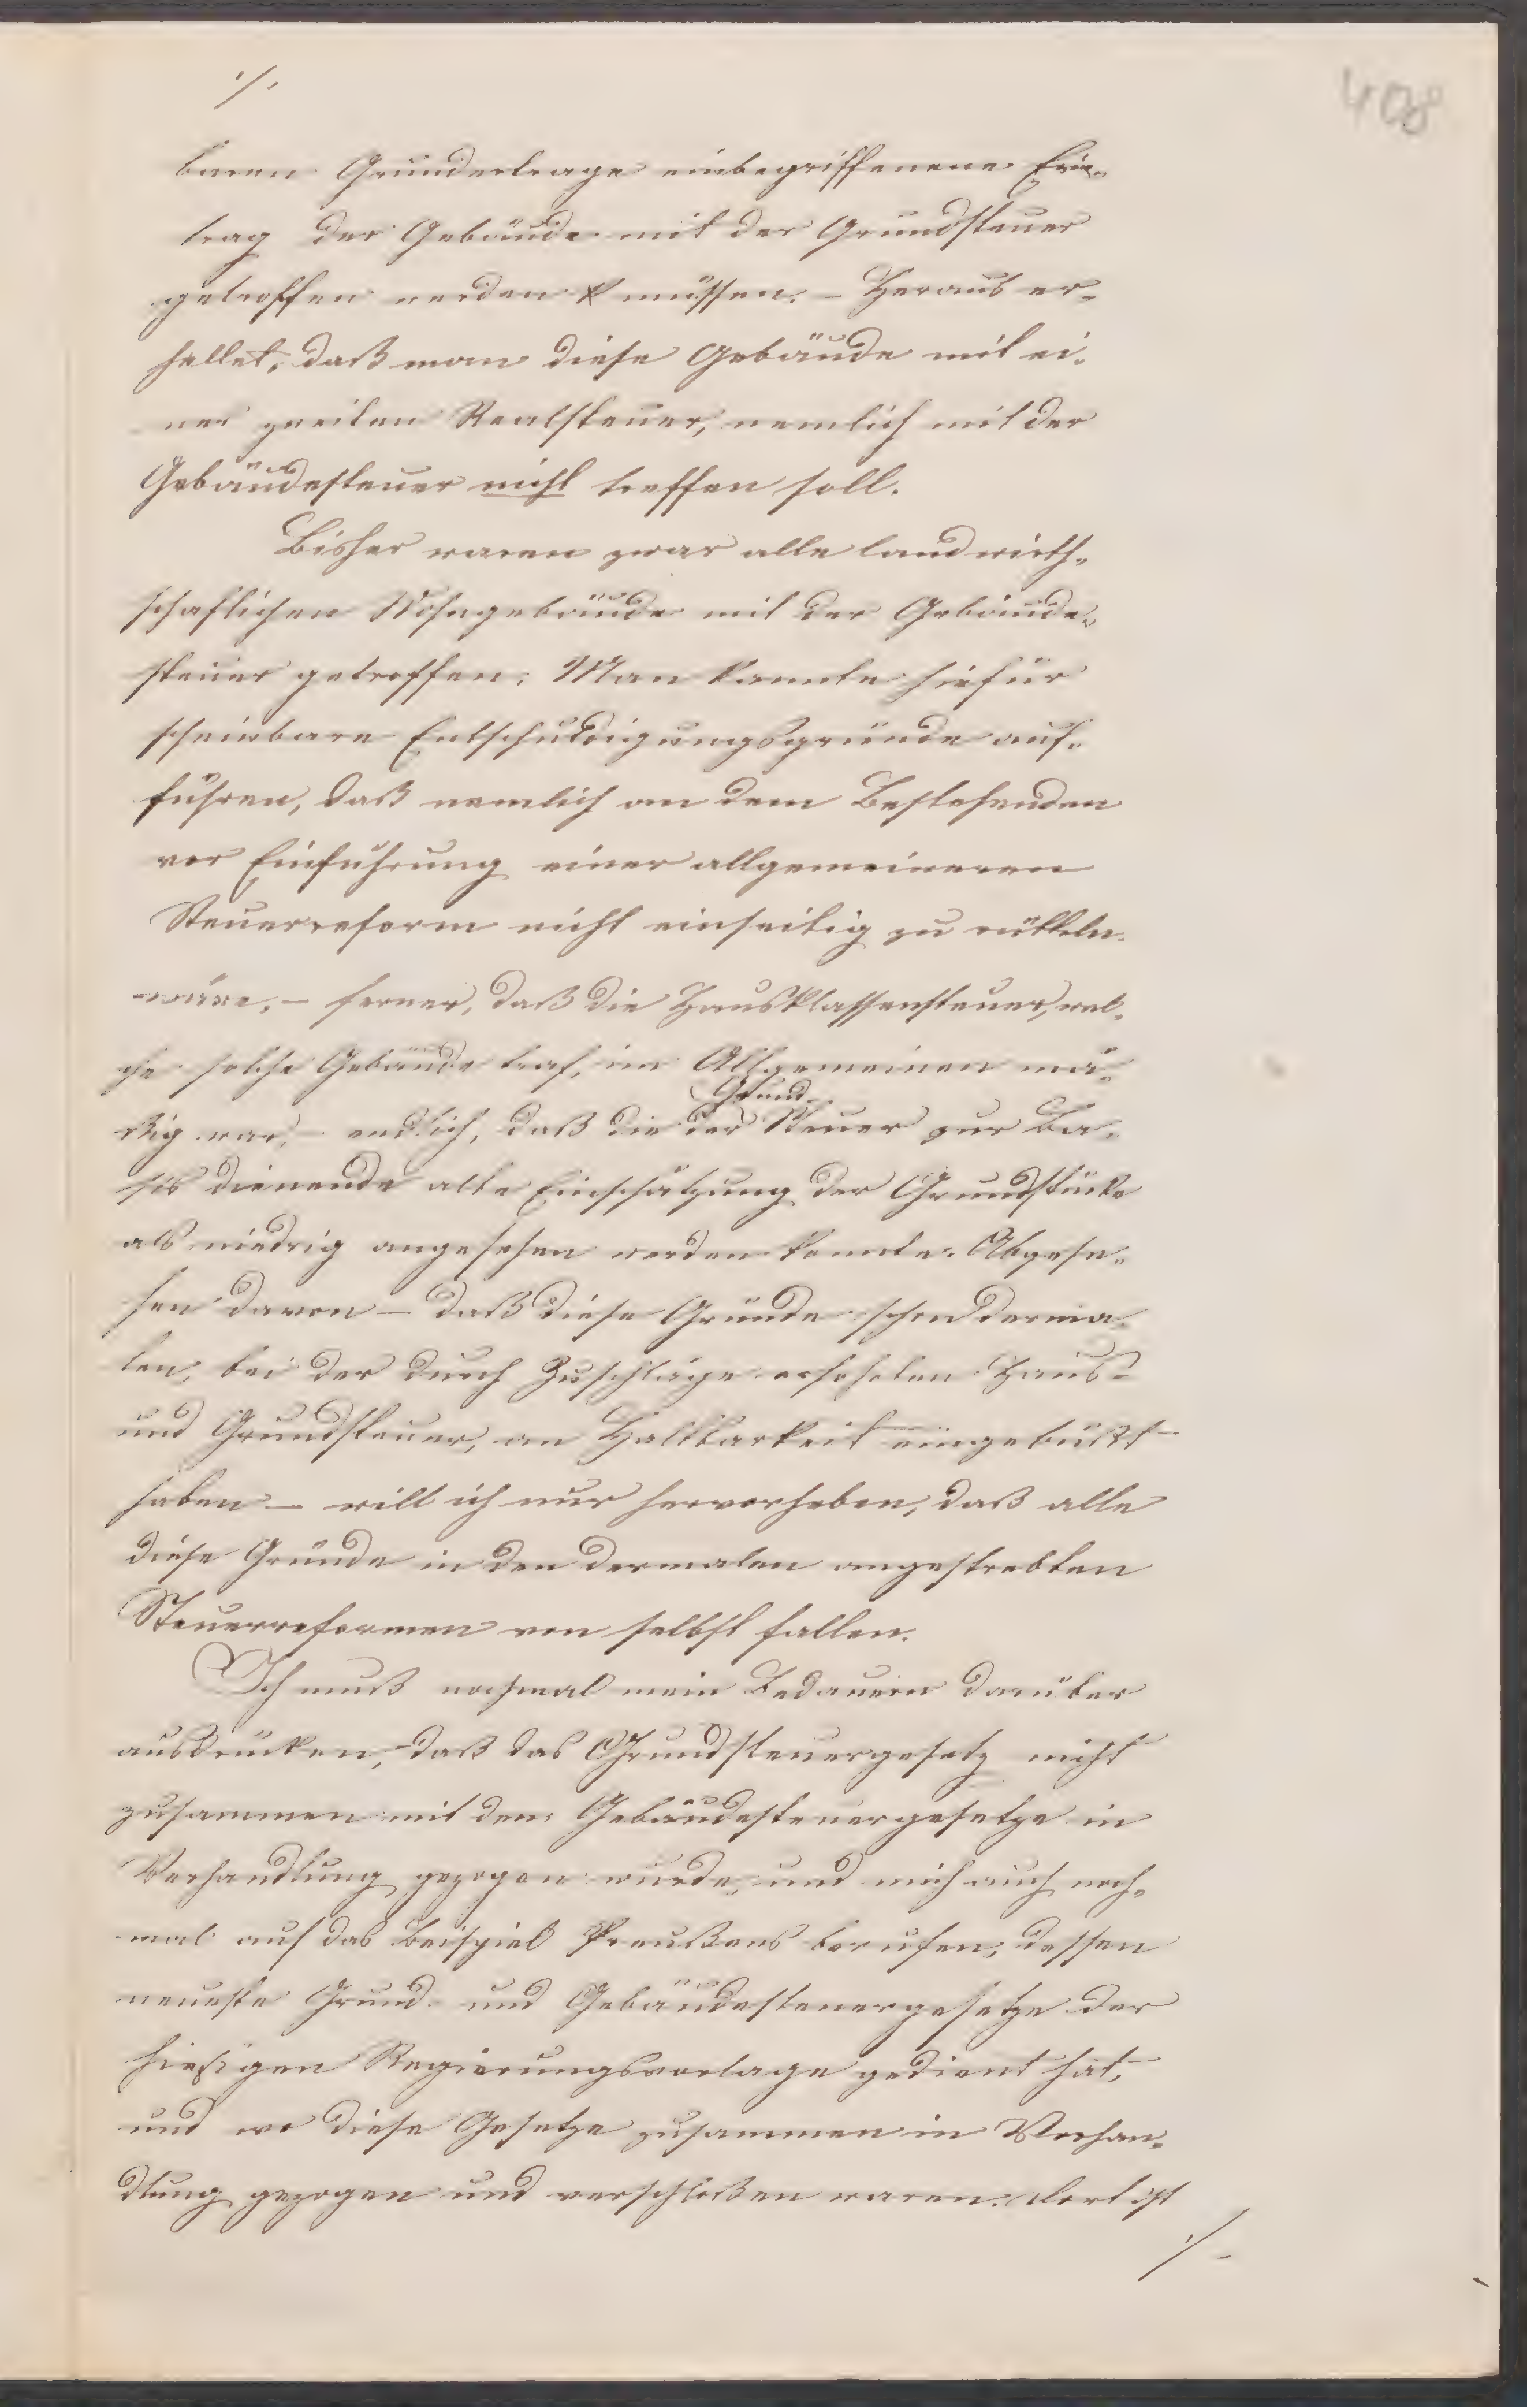 ·/.
408
baren Grundertrage einbegriffenene Er-
trag der Gebäude mit der Grundsteuer
getroffen werden müssen. – Heraus er-
hellet, daß man diese Gebäude mit ei-
ner zweiten Realsteuer, nemlich mit der
Gebäudesteuer nicht treffen soll.
Bisher waren zwar alle landwirth-
schaftlichen Wohngebäude mit der Gebäude-
steuer getroffen; Man konnte hiefür
scheinbare Entschuldigungsgründe auf-
führen, daß nemlich an dem Bestehenden
vor Einführung einer allgemeineren
Steuerreform nicht einseitig zu rütteln
wäre, – ferner, daß die Hausklassensteuer, wel-
che solche Gebäude traf, im Allgemeinen mä-
Grund-
ßig war, – endlich, daß die der Steuer zur Ba-
sis dienende alte Einschätzung der Grundstücke
als niedrig angesehen werden konnte. Abgese-
hen davon – daß diese Gründe schon derma-
len, bei der durch Zuschläge erhöhten Haus-
und Grundsteuer, an Haltbarkeit eingebüßt
haben – will ich nur hervorheben, daß alle
diese Gründe in den dermalen angestrebten
Steuerreformen von selbst fallen.
Ich muß nochmal mein Bedauern darüber
ausdrücken, daß das Grundsteuergesetz nicht
zusammen mit dem Gebäudesteuergesetze in
Verhandlung gezogen wurde, und mich auch noch-
mal auf das Beispiel Preußens berufen, dessen
neueste Grund- und Gebäudesteuergesetze der
hiesigen Regierungsvorlage gedient hat,
und wo diese Gesetze zusammen in Verhan-
dlung gezogen und verschloßen waren. Dort ist
·/.